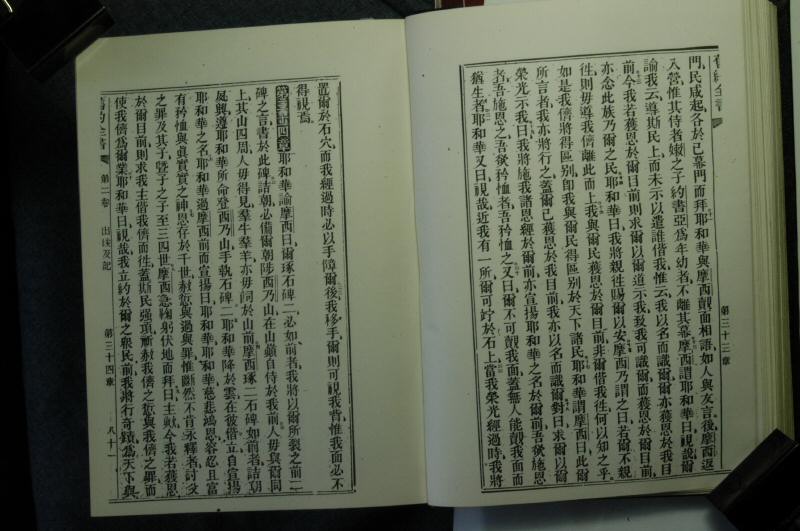 舊約全書 第三十三章
門、民咸起、各於己幕門而拜、耶和華與摩西覿面相語、如人與友言、後摩西返
入營、惟其侍者嫩之子約書亞爲年幼者、不離其幕、摩西謂耶和華曰、視哉、爾
諭我云、導斯民上、而未示以遣誰偕我、惟云、我以名而識爾、爾亦獲恩於我目
前、今我若獲恩於爾目前、則求爾以爾道示我、致我可識爾、而獲恩於爾目前、
亦念此族乃爾之民、耶和華曰、我將親徃、賜爾以安、摩西乃謂之曰、若爾不親
徃、則毋導我儕離此而上、我與爾民獲恩於爾目前、非爾偕我徃、何以知之乎、
如是我儕將得區別、卽我與爾民得區別於天下諸民、耶和華謂摩西曰、此爾
所言者、我亦將行之、蓋爾已獲恩於我目前、我亦以名而識爾、對曰、求爾以爾
榮光示我、曰、我將施我諸恩經於爾前、亦宣揚耶和華之名於爾前、吾欲施恩
者、吾施恩之、吾欲矜恤者、吾矜恤之、又曰、爾不可覿我面、蓋無人能覿我面而
猶生者、耶和華又曰、視哉、近我有一所、爾可竚於石上、當我榮光經過時、我將
置爾於石穴、而我經過時、必以手障爾、後我移手、爾則可視我背、惟我面必不
得視焉、
第三十四章 耶和華諭摩西曰、爾琢石碑二、必如前者、我將以爾所裂之前二
碑之言、書於此碑、詰朝必備、爾朝陟西乃山、在山巔自侍於我前、人毋與爾同
上、其山四周、人毋得見、羣牛羣羊、亦毋芻於山前、摩西琢二石碑如前者、詰朝
夙興、遵耶和華所命、登西乃山、手執石碑二、耶和華降於雲、在彼偕立、自宣揚
耶和華之名、耶和華過摩西前而宣揚曰、耶和華、耶和華、慈悲鴻恩、容忍且富
有矜恤與眞實之神、恩存於千世、赦愆與過與罪、惟斷然不肯永釋者、討父
之罪、及其子曁子之子、至三四世、摩西急鞠躬伏地而拜、曰、主歟、今我若獲恩
於爾目前、則求我主偕我儕而徃、蓋斯民强項、祈赦我儕之愆與我儕之罪、而
使我儕爲爾業、耶和華曰、視哉、我立約於爾之衆民前、我將行奇蹟、爲天下與
舊約全書 第二卷 出埃及記 第三十四章 八十一